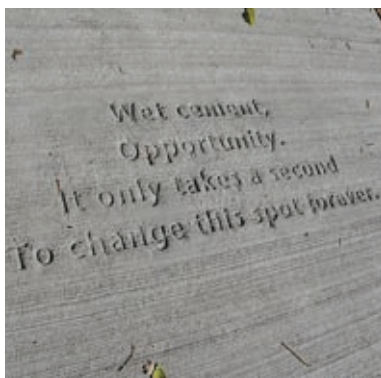 Wet cement,
Opportunity.
It only takes a second
To change this spot forever.